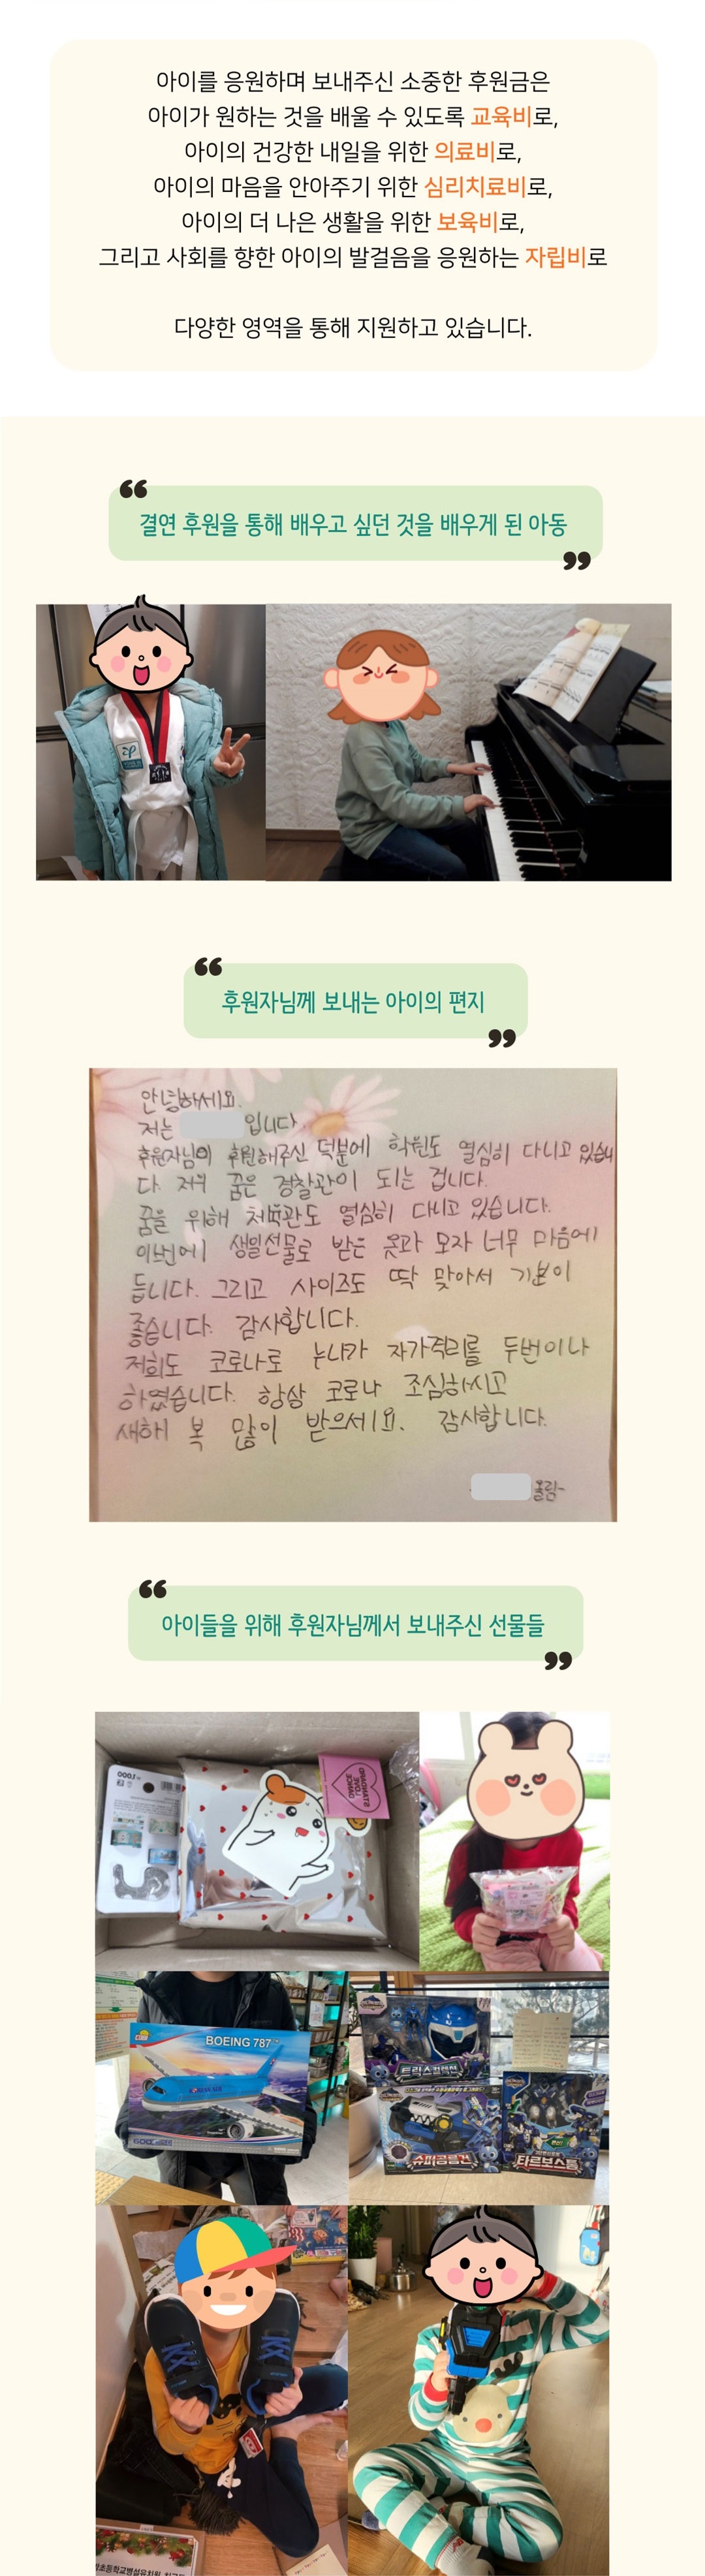 아이를 응원하며 보내주신 소중한 후원금은
아이가 원하는 것을 배울 수 있도록 교육비로,
아이의 건강한 내일을 위한 의료비로,
아이의 마음을 안아주기 위한 심리치료비로,
아이의 더 나은 생활을 위한 보육비로,
그리고 사회를 향한 아이의 발걸음을 응원하는 자립비로
다양한 영역을 통해 지원하고 있습니다.
❝
결연 후원을 통해 배우고 싶던 것을 배우게 된 아동
❞
❝
후원자님께 보내는 아이의 편지
❞
안녕하세요.
저는 입니다.
후원자님이 후원해주신 덕분에 학원도 열심히 다니고 있습니
다. 저의 꿈은 경찰관이 되는 겁니다.
꿈을 위해 체육관도 열심히 다니고 있습니다.
이번에 생일선물로 받은 옷과 모자 너무 마음에
듭니다. 그리고 사이즈도 딱 맞아서 기분이
좋습니다. 감사합니다.
저희도 코로나로 누나가 자가격리를 두번이나
하였습니다. 항상 코로나 조심하시고
새해 복 많이 받으세요. 감사합니다.
올림-
❝
아이들을 위해 후원자님께서 보내주신 선물들
❞
BOEING 787
KOREAN AIR
트리스컬렉션
슈퍼공룡건
타르보스톰